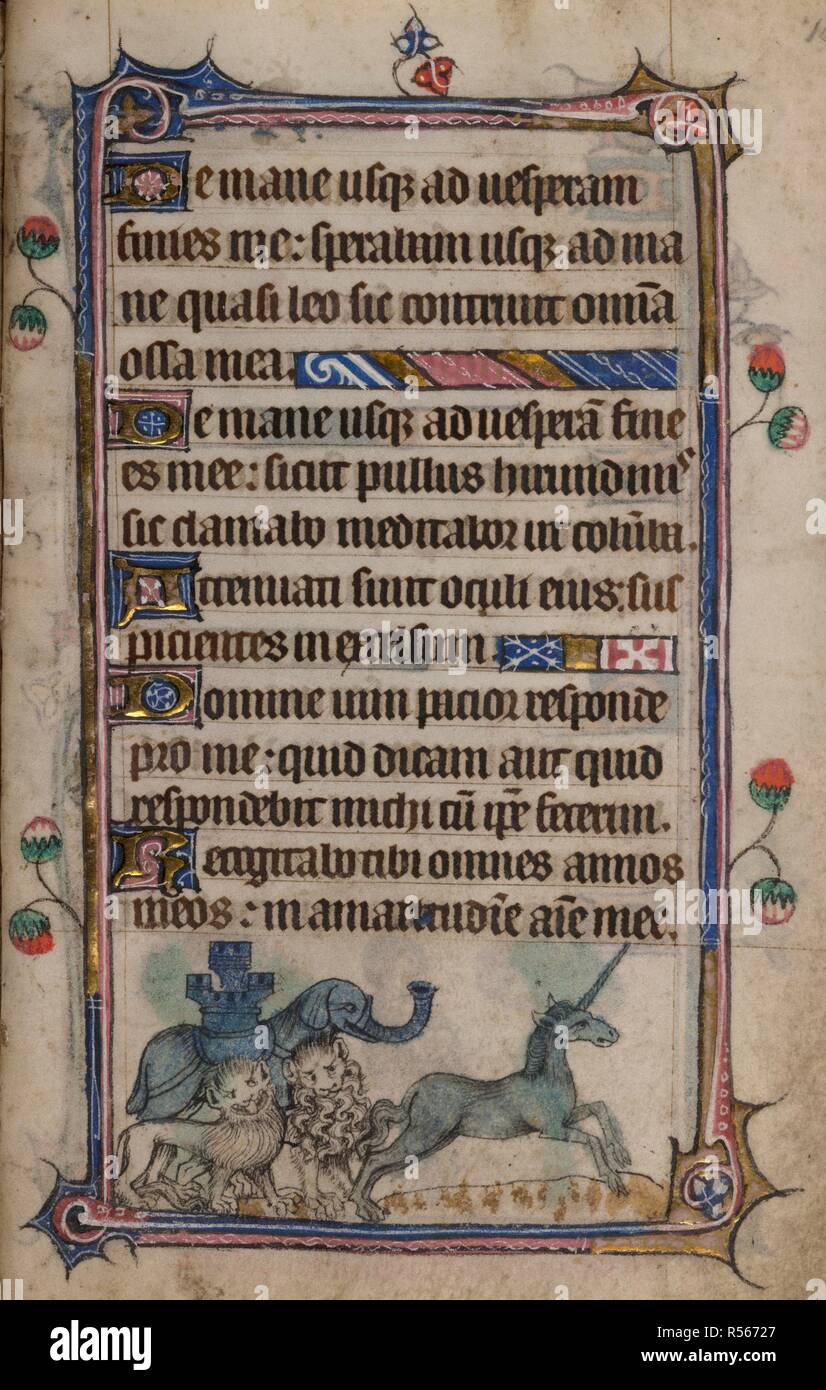 De mane usq; ad uesperam
finies me: sperabam usq; ad ma
ne quasi leo sic contriuit om̄ia
ossa mea.
De mane usq; ad uesperā fini
es me: sicut pullus hirundinis
sic clamabo meditabor ut colūba.
Attenuati sunt oculi
picientes in
Domine uim pacior responde
pro me: quid dicam aut quid
respondebit michi cū ip̄e fecerim.
Recogitabo tibi omnes annos
meos: in amaritudīe aīe mee.
alamy
Image ID: R56727
www.alamy.com